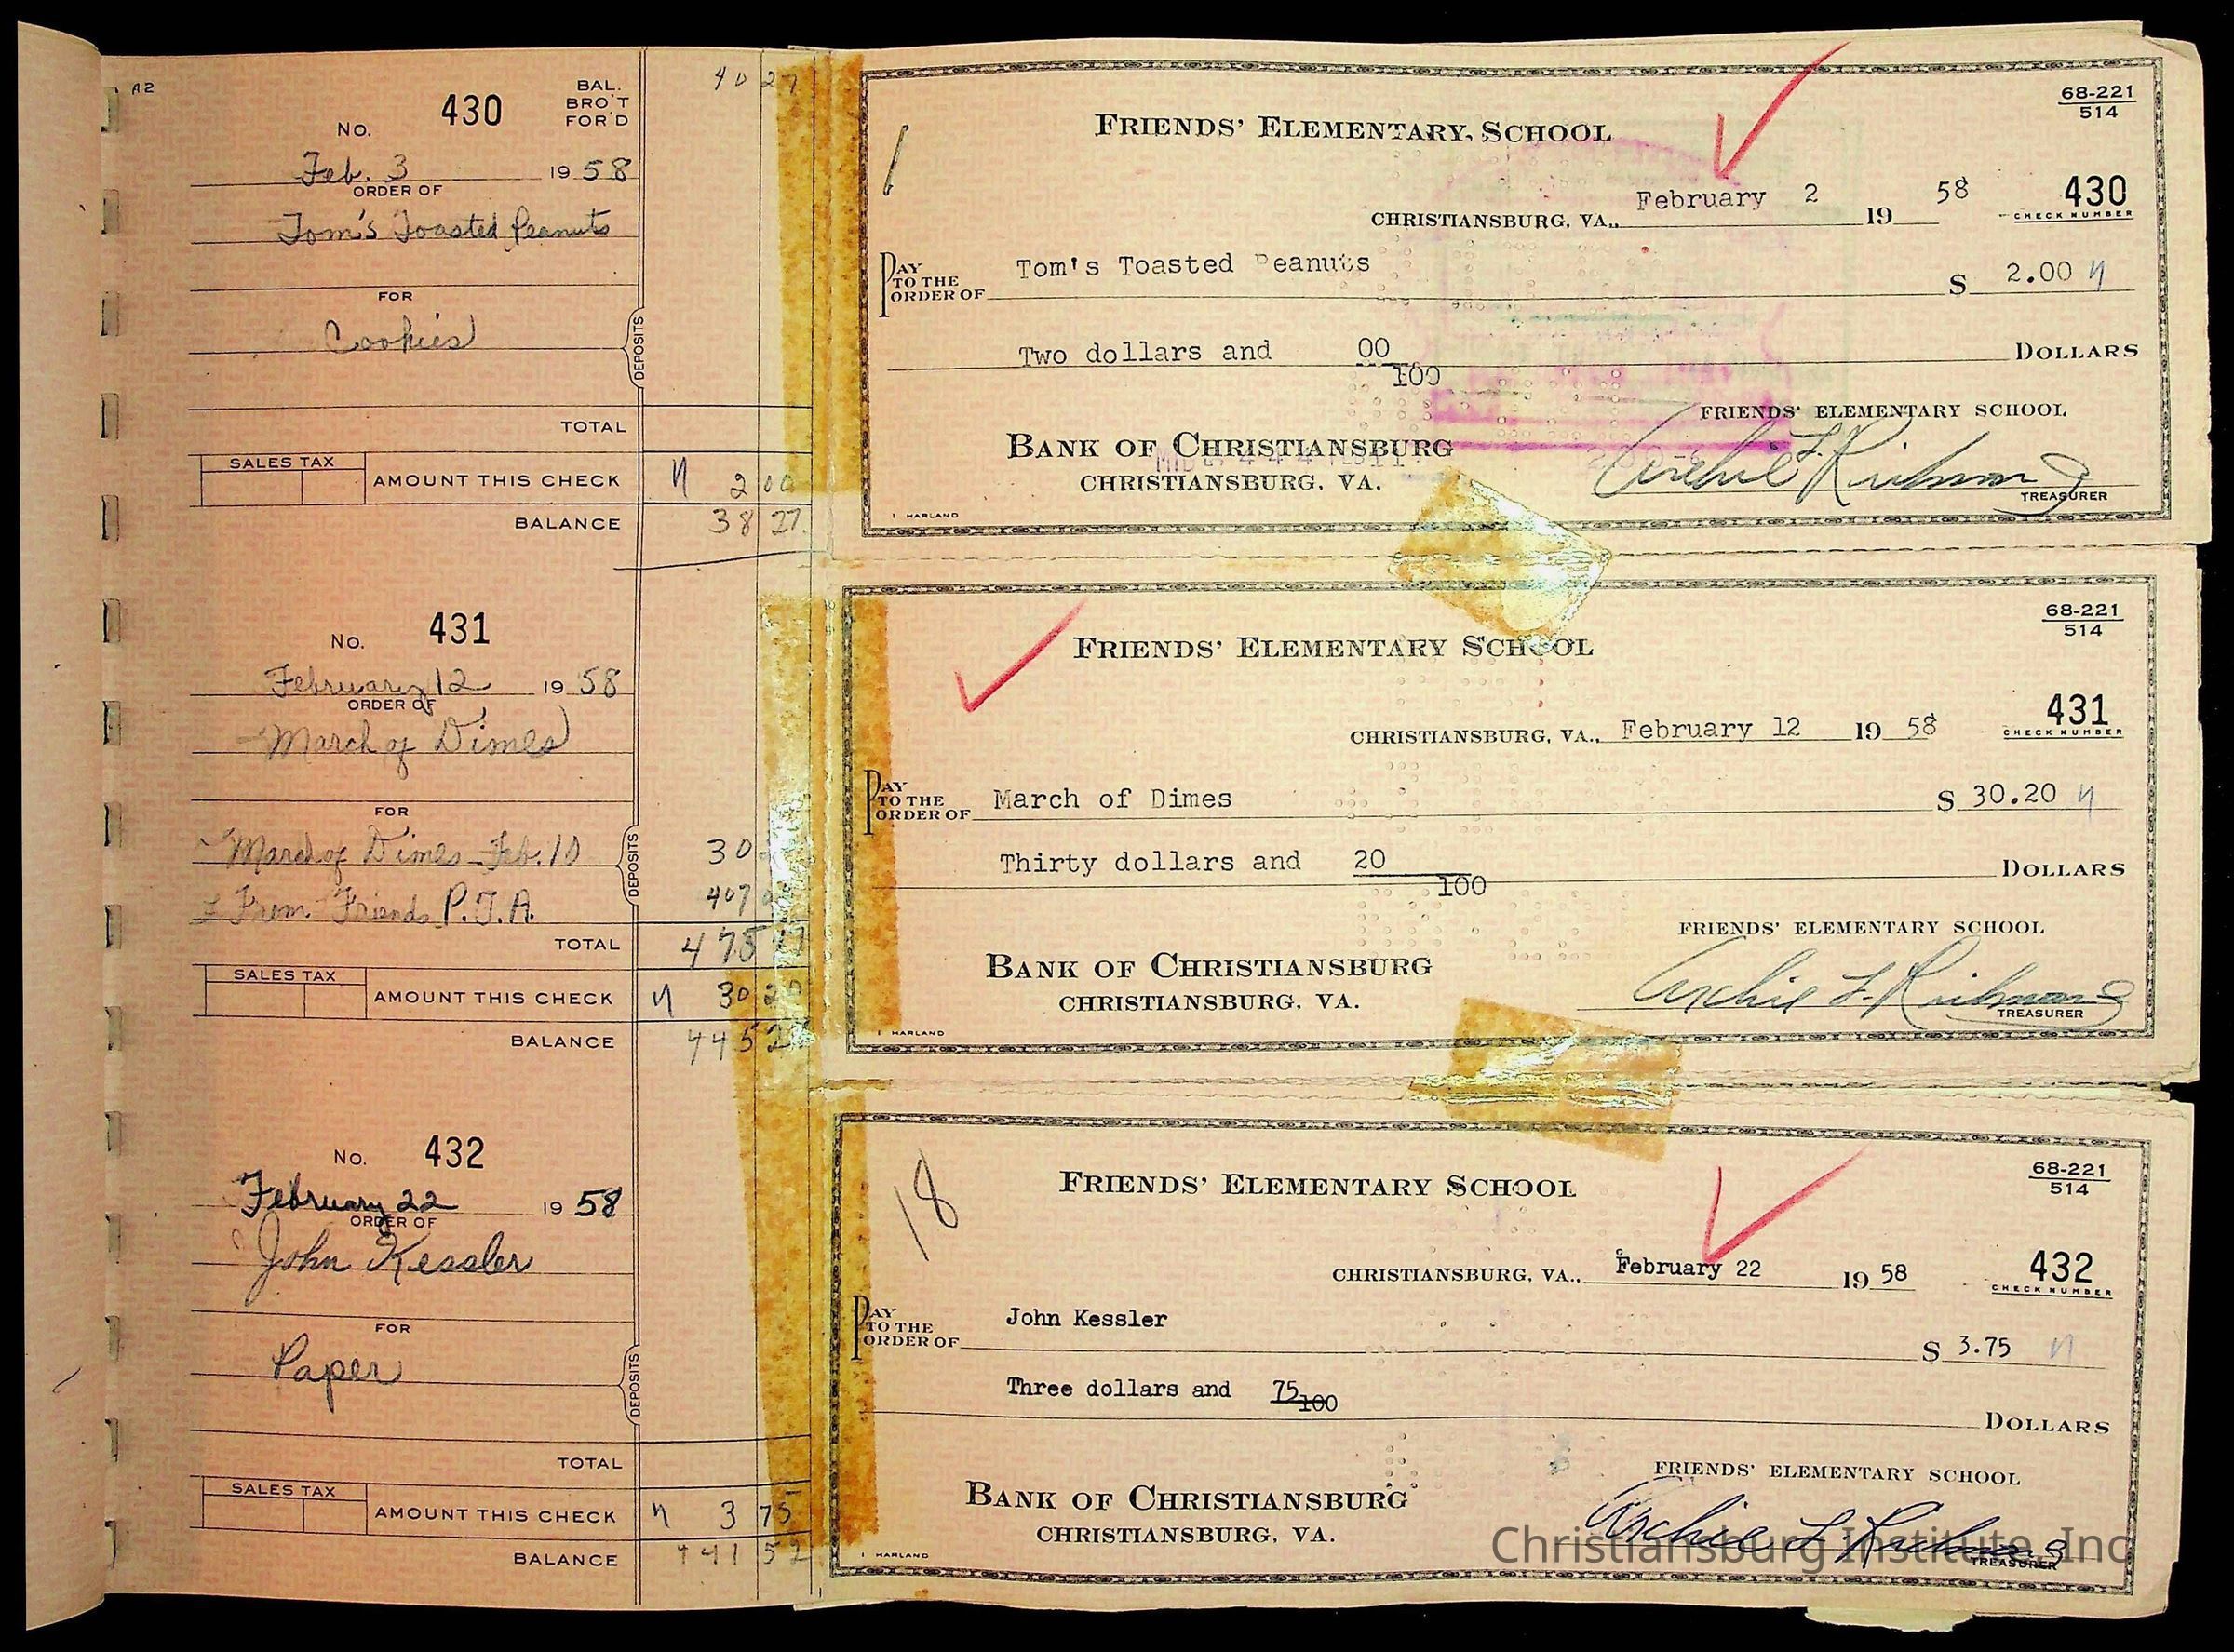 A2
No. 430 BAL. BRO'T FOR'D 40 27
Feb. 3 19 58
ORDER OF
Tom's Toasted Peanuts
FOR
Cookies
DEPOSITS
TOTAL
SALES TAX
AMOUNT THIS CHECK 2 00
BALANCE 38 27
FRIENDS' ELEMENTARY SCHOOL
68-221
514
CHRISTIANSBURG, VA., February 2 19 58
430
CHECK NUMBER
PAY TO THE ORDER OF Tom's Toasted Peanuts $ 2.00
Two dollars and 00/100 DOLLARS
FRIENDS' ELEMENTARY SCHOOL
BANK OF CHRISTIANSBURG
CHRISTIANSBURG, VA.
TREASURER
HARLAND
No. 431
February 12 19 58
ORDER OF
March of Dimes
FOR
March of Dimes Feb. 10 30
From Friends P.T.A. 407
DEPOSITS
TOTAL 475
SALES TAX
AMOUNT THIS CHECK 30 20
BALANCE 445
FRIENDS' ELEMENTARY SCHOOL
68-221
514
CHRISTIANSBURG, VA., February 12 19 58
431
CHECK NUMBER
PAY TO THE ORDER OF March of Dimes $ 30.20
Thirty dollars and 20/100 DOLLARS
FRIENDS' ELEMENTARY SCHOOL
BANK OF CHRISTIANSBURG
CHRISTIANSBURG, VA.
Archie L. Richmond
TREASURER
HARLAND
No. 432
February 22 19 58
ORDER OF
John Kessler
FOR
Paper
DEPOSITS
TOTAL
SALES TAX
AMOUNT THIS CHECK 3 75
BALANCE 441 52
18
FRIENDS' ELEMENTARY SCHOOL
68-221
514
CHRISTIANSBURG, VA., February 22 19 58
432
CHECK NUMBER
PAY TO THE ORDER OF John Kessler $ 3.75
Three dollars and 75/100
DOLLARS
FRIENDS' ELEMENTARY SCHOOL
BANK OF CHRISTIANSBURG
CHRISTIANSBURG, VA.
TREASURER
HARLAND
Christiansburg Institute, Inc